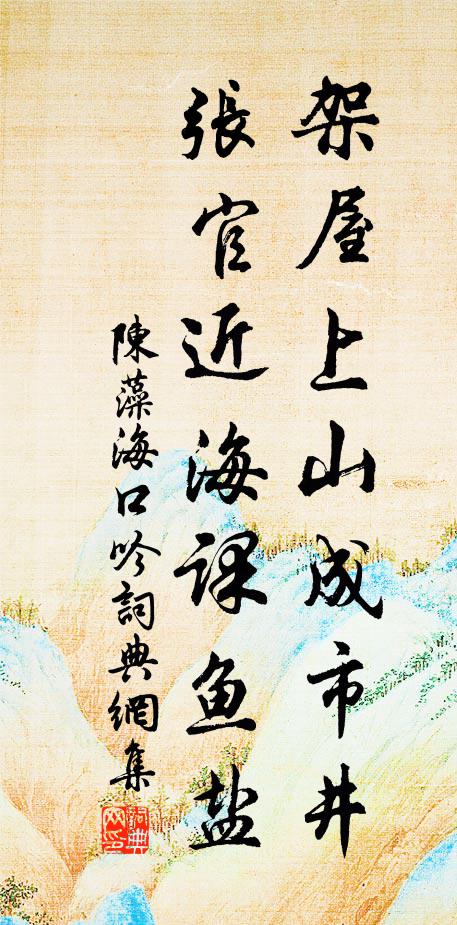 架屋上山成市井
張官近海課鱼盐
陳藻海口吟詞典網集
詞典网印